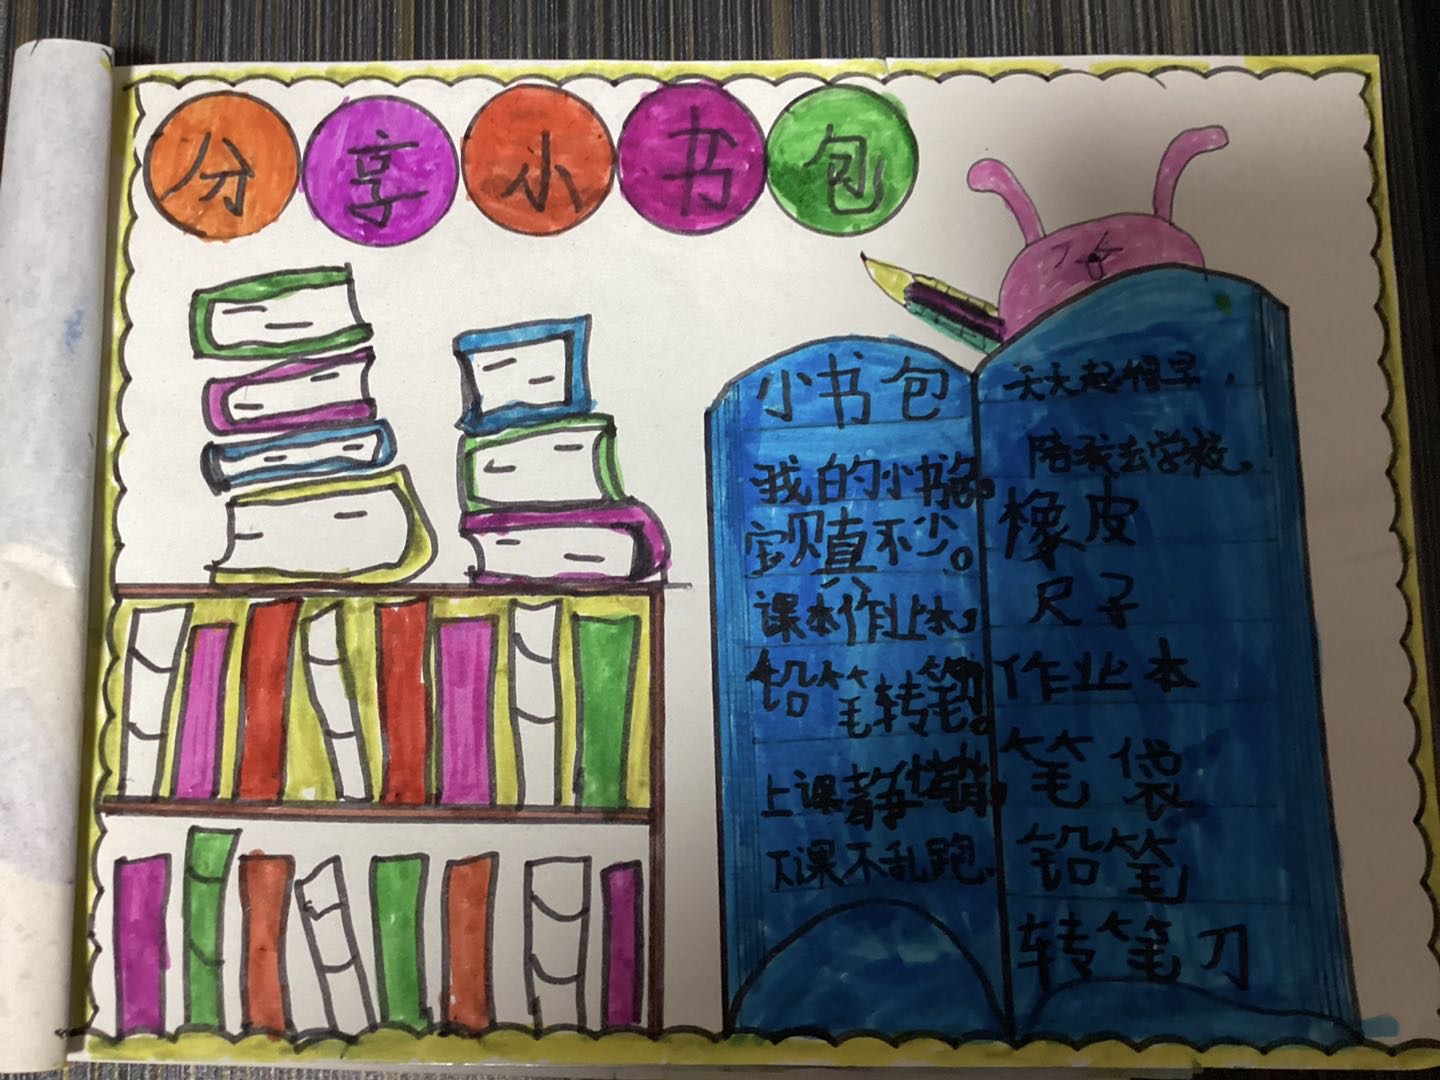 分享小书包
小书包
我的小书包。
宝贝真不少。
课本作业本,
铅笔转笔刀。
上课静悄悄,
下课不乱跑.
天天起得早,
陪我去学校。
橡皮
尺子
作业本
笔袋
铅笔
转笔刀